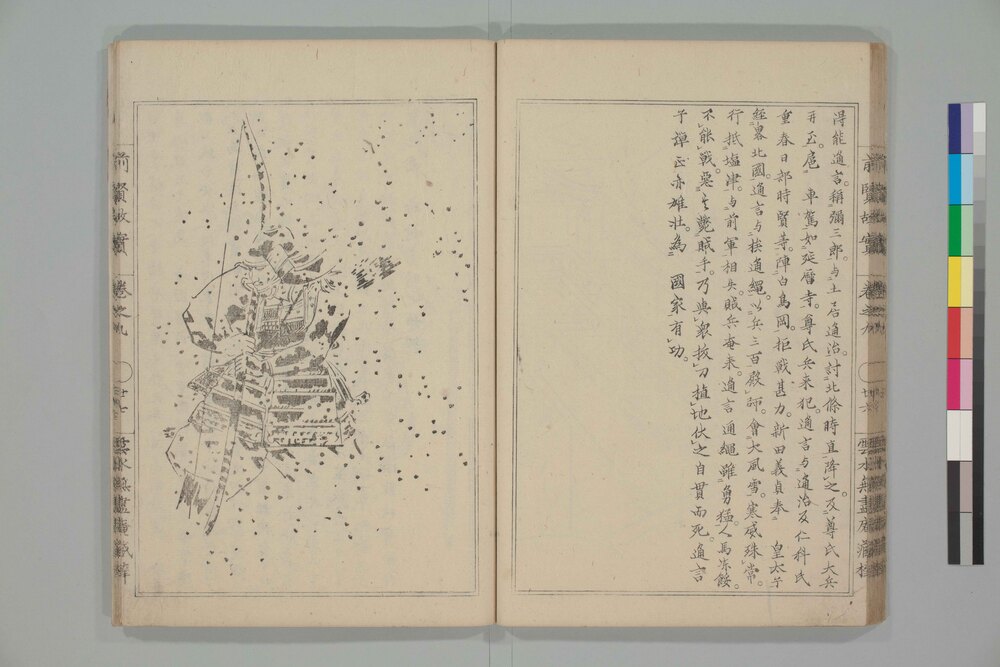 得能通言。稱彌三郎。与土居通治。討北條時直降之。及尊氏大兵
再至。扈 車駕如延曆寺。尊氏兵来犯。通言与通治及仁科氏
重春日部時賢等。陣白鳥岡。拒戰甚力。新田義貞奉 皇太子
經畧北國。通言与族通繩。以兵三百殿師。會大風雪。寒威殊常。
行抵塩津。与前軍相失。賊兵奄来。通言通繩雖勇猛。人馬凍餒。
不能戰。惡之斃賊手。乃與衆拔刀植地伏之自貫而死。通言
子弾正亦雄壯。為 國家有功。
前賢故實 卷之九 廿六 雲水無盡庵藏梓
前賢故實 卷之九 廿七 雲水無盡庵藏梓